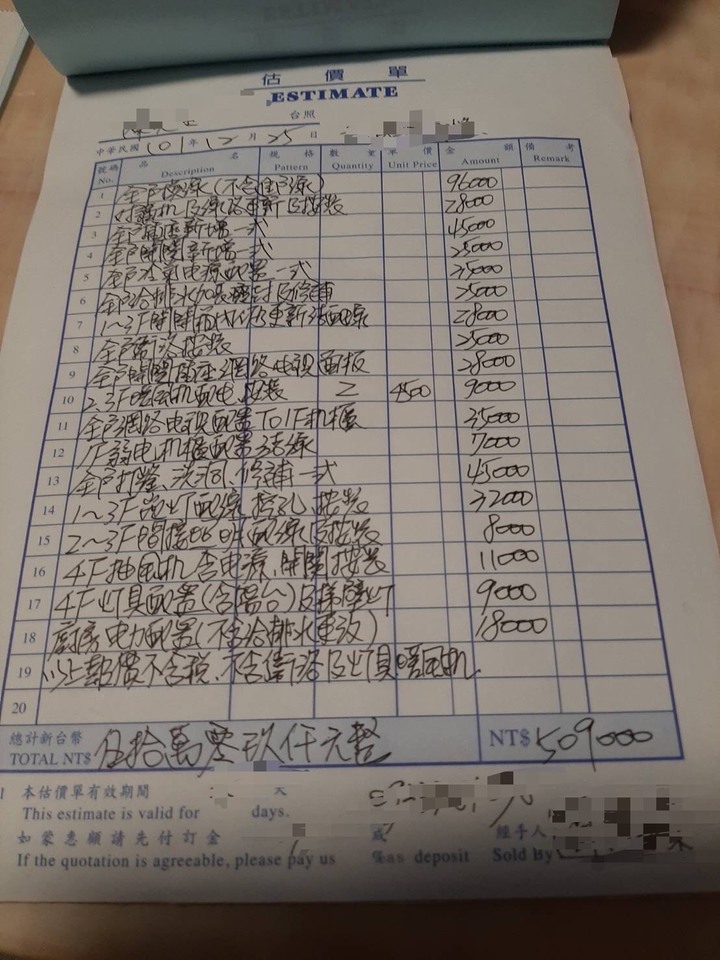 估價單
ESTIMATE
台照
中華民國 101 年 12 月 25 日
號碼 品名 規格 數量 單價 金額 備考
No. Description Pattern Quantity Unit Price Amount Remark
1 全戶換線(不含進戶線) 96000
2 对講机及線路更新及按裝 28000
3 全戶插座新增一式 45000
4 全戶開関新增一式 25000
5 全戶冷氣电源配置一式 35000
6 全戶給排水及修補 25000
7 1~3F開関箱更新 28000
8 全戶衛浴按裝 25000
9 全戶開関插座、網路电視面板 28000
10 2.3F暖風机配电、按裝 2 4500 9000
11 全戶網路电視配置TO1F机櫃 35000
12 1F弱电机櫃配置結線 7000
13 全戶打鑿、洗洞、修補一式 45000
14 1~3F崁灯配線、挖孔、按裝 32000
15 2~3F間接照明配線及按裝 8000
16 4F抽風机含电源、開関按裝 11000
17 4F灯具配置(含陽台)及採壁灯 9000
18 廚房电力配置(不含給排水更改) 18000
19 以上報價不含税、不含衛浴及灯具暖風机
20
總計新台幣
TOTAL NT$ 伍拾萬零玖仟元整 NT$ 509000
1 本估價單有效期間 天
This estimate is valid for days.
如蒙惠顧請先付訂金 或 經手人
If the quotation is agreeable, please pay us %as deposit Sold By